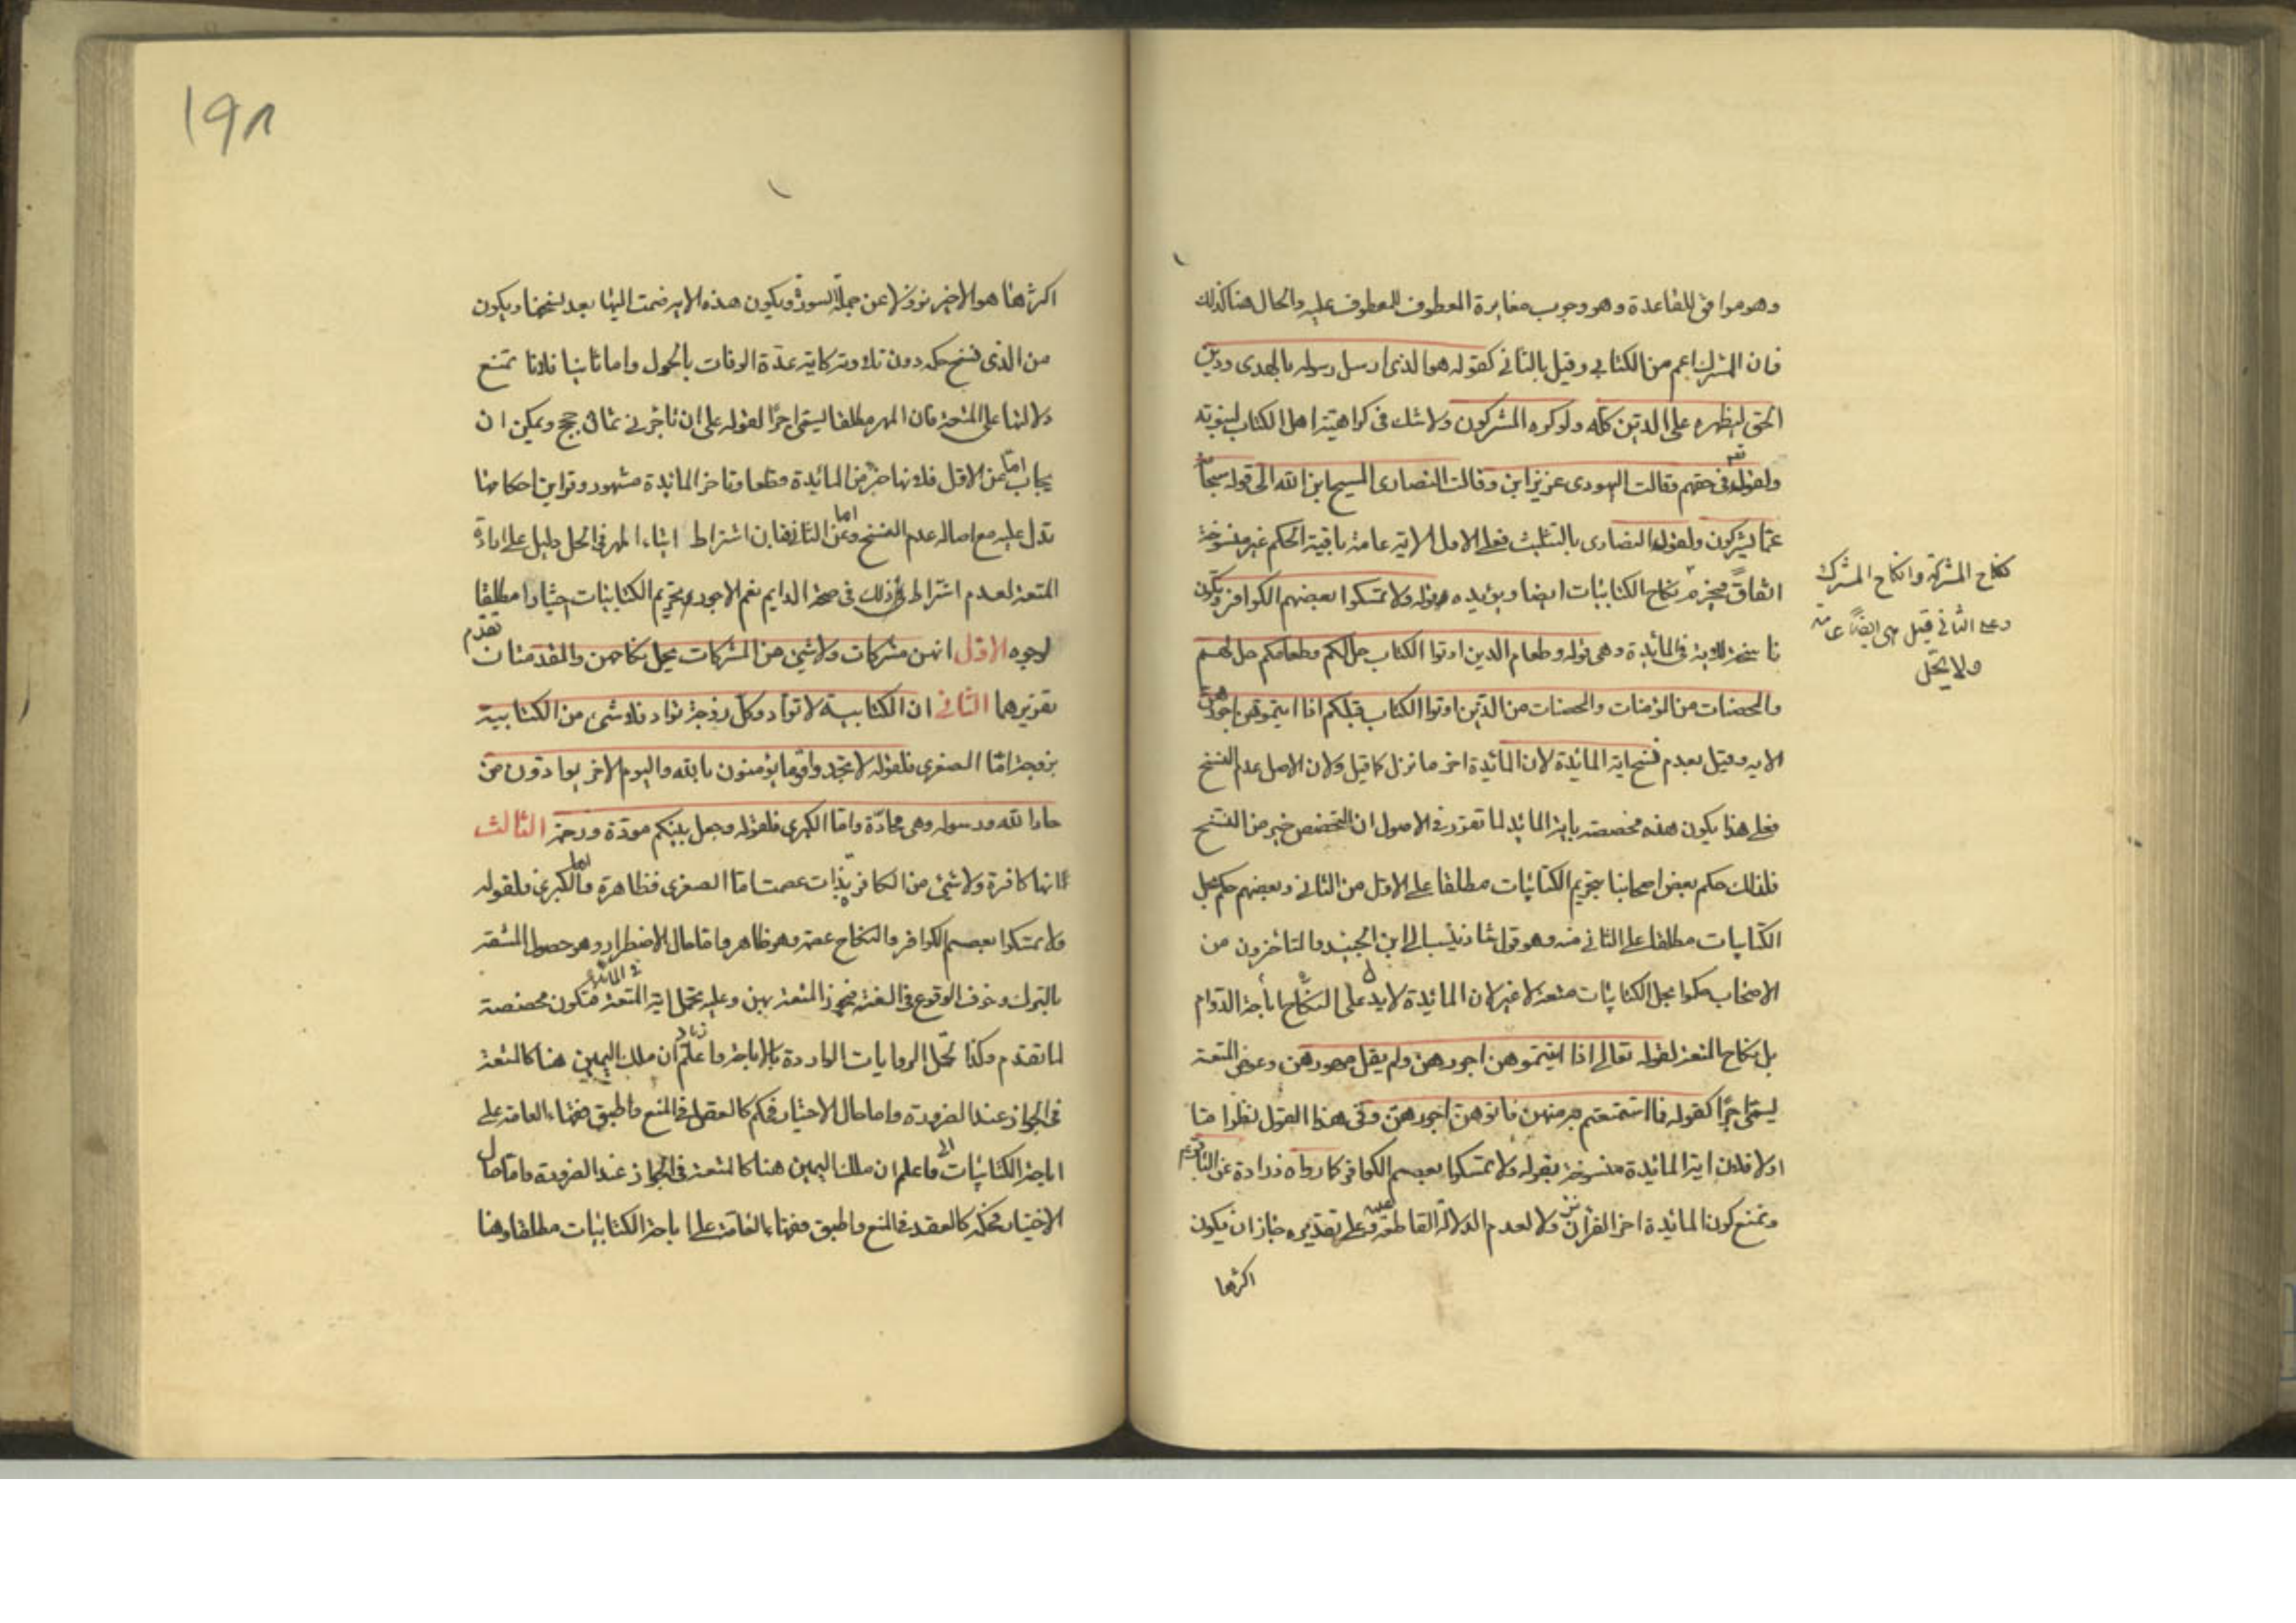 وهو موافق للقاعدة وهو وجوب مغايرة المعطوف للمعطوف عليه والحال هنا كذلك
فان المشرك اعم من الكتابي وقيل بالثاني كقوله هو الذي ارسل رسوله بالهدى ودين
الحق ليظهره على الدين كله ولو كره المشركون ولا شك في كراهية اهل الكتاب لنبوته
ولقوله تعم في حقهم وقالت اليهود عزير ابن وقالت النصارى المسيح ابن الله الى قوله سبحانه
عما يشركون ولقول النصارى بالتثليث فعلى الاول الاية عامة باقية الحكم غير منسوخة
اتفاقا فيحرم نكاح الكتابيات ايضا ويؤيده قوله ولا تمسكوا بعصم الكوافر ويكون
ناسخة للاية في المائدة وهي قوله وطعام الذين اوتوا الكتاب حل لكم وطعامكم حل لهم
والمحصنات من المؤمنات والمحصنات من الذين اوتوا الكتاب قبلكم اذا اتيتموهن اجورهن
الايه وقيل بعدم نسخ اية المائدة لان المائدة اخر ما نزل كما قيل ولان الاصل عدم النسخ
فعلى هذا يكون هذه مخصصة باية المائدة لما تقرر في الاصول ان التخصص خير من النسخ
فلذلك حكم بعض اصحابنا بتحريم الكتابيات مطلقا على الاول من الثاني وبعضهم حكم بحل
الكتابيات مطلقا على الثاني منه وهو قول شاذ ينسب الى ابن الجنيد والمتاخرون من
الاصحاب حكموا بحل الكتابيات متعة لا غير لان المائدة لا يدل على النكاح باجرة الدوام
بل نكاح المتعة لقوله تعالى اذا اتيتموهن اجورهن ولم يقل مهورهن وعوض المتعة
يسمى اجرا كقوله فما استمتعتم به منهن فاتوهن اجورهن وفي هذا القول نظر اما
اولا فلان اية المائدة منسوخة بقوله ولا تمسكوا بعصم الكوافر كما رواه زرارة عن الباقر
ونمنع كون المائدة اخر القران نزولا لعدم الدلالة القاطعة عليه وعلى تقديره جاز ان يكون
اكثرها
نكاح المشركة وانكاح المشرك
وعلى الثاني قيل هي ايضا عامة
ولا يحل
١٩٨
اكثرها هو الاخير نزولا عن جملة السورة ويكون هذه الاية ضمت اليها بعد نسخها ويكون
من الذي نسخ حكمه دون تلاوته كاية عدة الوفات بالحول واما ثانيا فلانا نمنع
دلالتها على المتعة فان المهر مطلقا يسمى اجرا لقوله على ان تاجرني ثماني حجج ويمكن ان
يجاب اما عن الاول فلانها اخر من المائدة قطعا وتاخر المائدة مشهور وقراين احكامها
تدل عليه مع اصالة عدم النسخ واما عن الثاني فبان اشتراط ايتاء المهر في الحل دليل على ارادة
المتعة لعدم اشتراط ذلك في صحة الدايم نعم الاجود تحريم الكتابيات اختيارا مطلقا
لوجوه الاول انهن مشركات ولا شيء من المشركات يحل نكاحهن والمقدمتان تقدم
تقريرهما الثاني ان الكتابية لا تواد وكل زوجة تواد فلا شيء من الكتابية
بزوجة اما الصغرى فلقوله لا تجد قوما يؤمنون بالله واليوم الاخر يوادون من
حاد الله ورسوله وهي محادة واما الكبرى فلقوله وجعل بينكم مودة ورحمة الثالث
انها كافرة ولا شيء من الكافرة بذات عصمة اما الصغرى فظاهرة واما الكبرى فلقوله
ولا تمسكوا بعصم الكوافر والنكاح عصمة وهو ظاهر واما حال الاضطرار وهو حصول المشقة
بالترك وخوف الوقوع في الفتنة فيجوز المتعة بهن وعليه تحمل اية المتعة في المائدة فتكون مخصصة
لما تقدم وكذا تحمل الروايات الواردة بالاباحة واعلم ان ملك اليمين هنا كالمتعة
في الجواز عند الضرورة واما حال الاختيار فحكم كالعقد في المنع واطبق فقهاء العامة على
اباحة الكتابيات واعلم ان ملك اليمين هنا كالمتعة في الجواز عند الضرورة واما حال
الاختيار فحكمه كالعقد في المنع واطبق فقهاء العامة على اباحة الكتابيات مطلقا وهنا